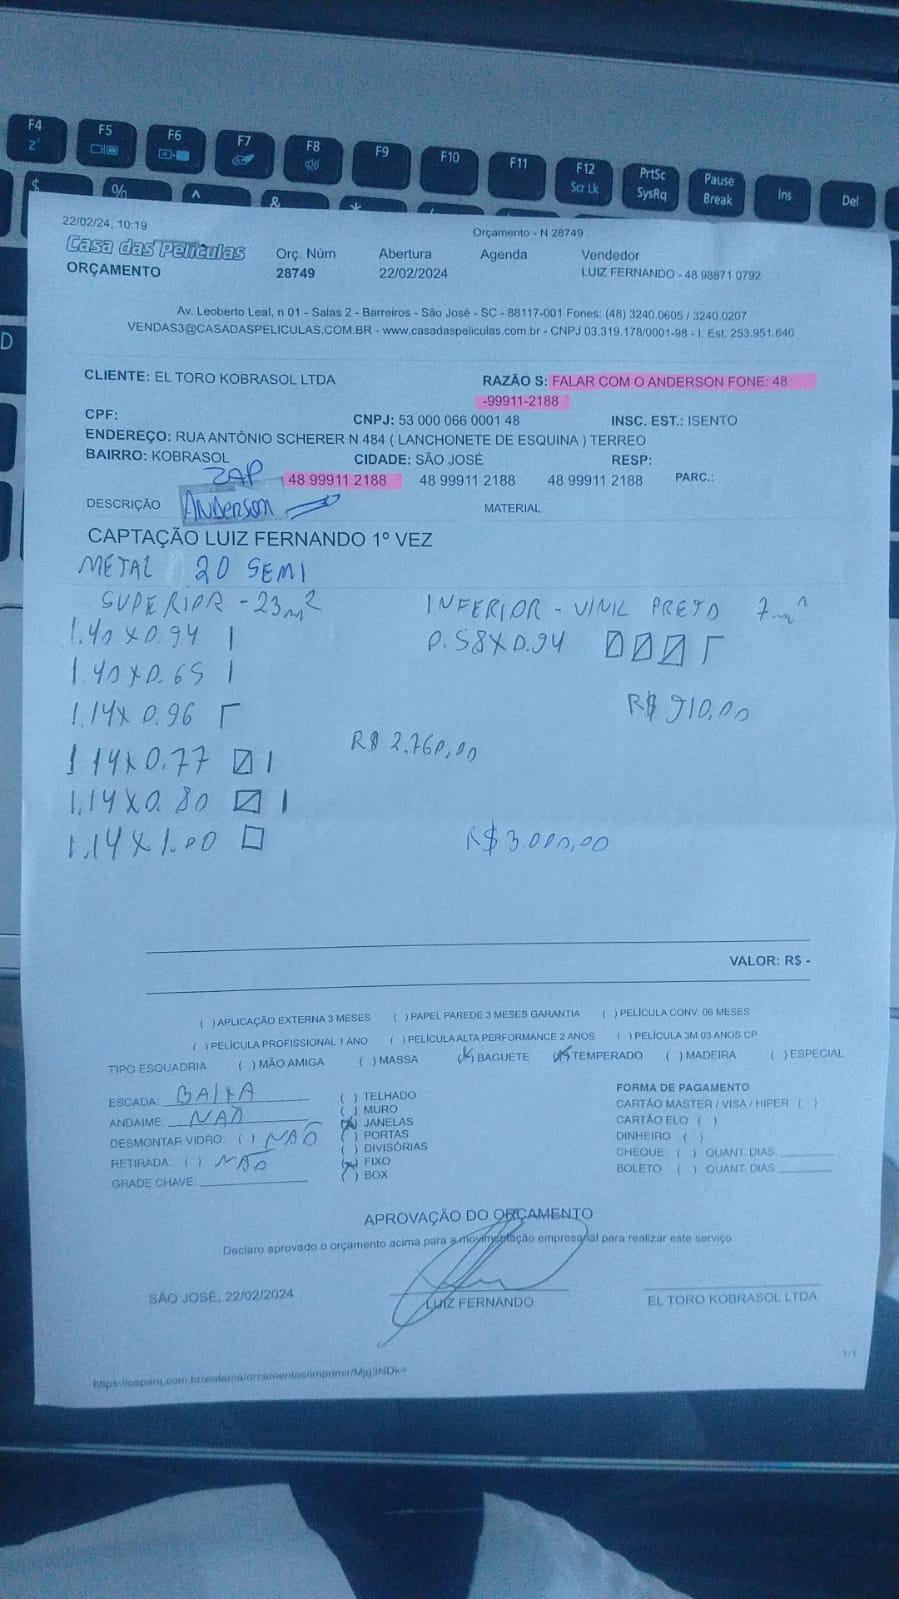 F4
F5
F6
F7
F8
F9
F10
F11
F12
Scr Lk
PrtSc
SysRq
Pause
Break
Ins
Del
$
%
^
&
*
D
22/02/24, 10:19
Orçamento - N 28749
Casa das Películas
Orç. Núm
Abertura
Agenda
Vendedor
ORÇAMENTO
28749
22/02/2024
LUIZ FERNANDO - 48 98871 0792
Av. Leoberto Leal, n 01 - Salas 2 - Barreiros - São José - SC - 88117-001 Fones: (48) 3240.0605 / 3240.0207
VENDAS3@CASADASPELICULAS.COM.BR - www.casadaspeliculas.com.br - CNPJ 03.319.178/0001-98 - I. Est. 253.951.640
CLIENTE: EL TORO KOBRASOL LTDA
RAZÃO S: FALAR COM O ANDERSON FONE: 48
-99911-2188
CPF:
CNPJ: 53 000 066 0001 48
INSC. EST.: ISENTO
ENDEREÇO: RUA ANTÔNIO SCHERER N 484 ( LANCHONETE DE ESQUINA ) TERREO
BAIRRO: KOBRASOL
CIDADE: SÃO JOSÉ
RESP:
ZAP
48 99911 2188
48 99911 2188
48 99911 2188
PARC.:
DESCRIÇÃO
Anderson
MATERIAL
CAPTAÇÃO LUIZ FERNANDO 1º VEZ
METAL 20 SEMI
SUPERIOR - 23m²
INFERIOR - VINIL PRETO 7m²
1.40 x 0.94
0.58 x 0.94
1.40 x 0.65
1.14 x 0.96
R$ 910,00
1.14 x 0.77
R$ 2.760,00
1.14 x 0.80
1.14 x 1.00
R$ 3.000,00
VALOR: R$ -
( ) APLICAÇÃO EXTERNA 3 MESES ( ) PAPEL PAREDE 3 MESES GARANTIA ( ) PELÍCULA CONV. 06 MESES
( ) PELÍCULA PROFISSIONAL 1 ANO ( ) PELÍCULA ALTA PERFORMANCE 2 ANOS ( ) PELÍCULA 3M 03 ANOS CP
TIPO ESQUADRIA ( ) MÃO AMIGA ( ) MASSA (X) BAGUETE (X) TEMPERADO ( ) MADEIRA ( ) ESPECIAL
ESCADA: BAIXA
ANDAIME: NAO
DESMONTAR VIDRO: ( ) NÃO
RETIRADA: ( ) NÃO
GRADE CHAVE:
( ) TELHADO
( ) MURO
(X) JANELAS
( ) PORTAS
( ) DIVISÓRIAS
(X) FIXO
( ) BOX
FORMA DE PAGAMENTO
CARTÃO MASTER / VISA / HIPER ( )
CARTÃO ELO ( )
DINHEIRO ( )
CHEQUE ( ) QUANT. DIAS
BOLETO ( ) QUANT. DIAS
APROVAÇÃO DO ORÇAMENTO
Declaro aprovado o orçamento acima para a movimentação empresarial para realizar este serviço
SÃO JOSÉ, 22/02/2024
LUIZ FERNANDO
EL TORO KOBRASOL LTDA
1/1
https://osparq.com.br/sistema/orcamentos/imprimir/